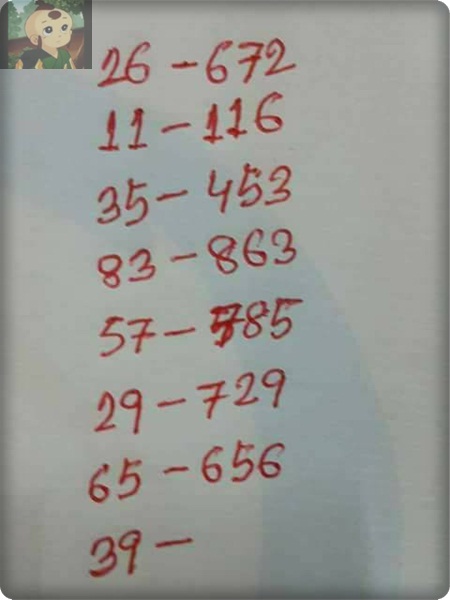 26 - 672
11 - 116
35 - 453
83 - 863
57 - 785
29 - 729
65 - 656
39 -